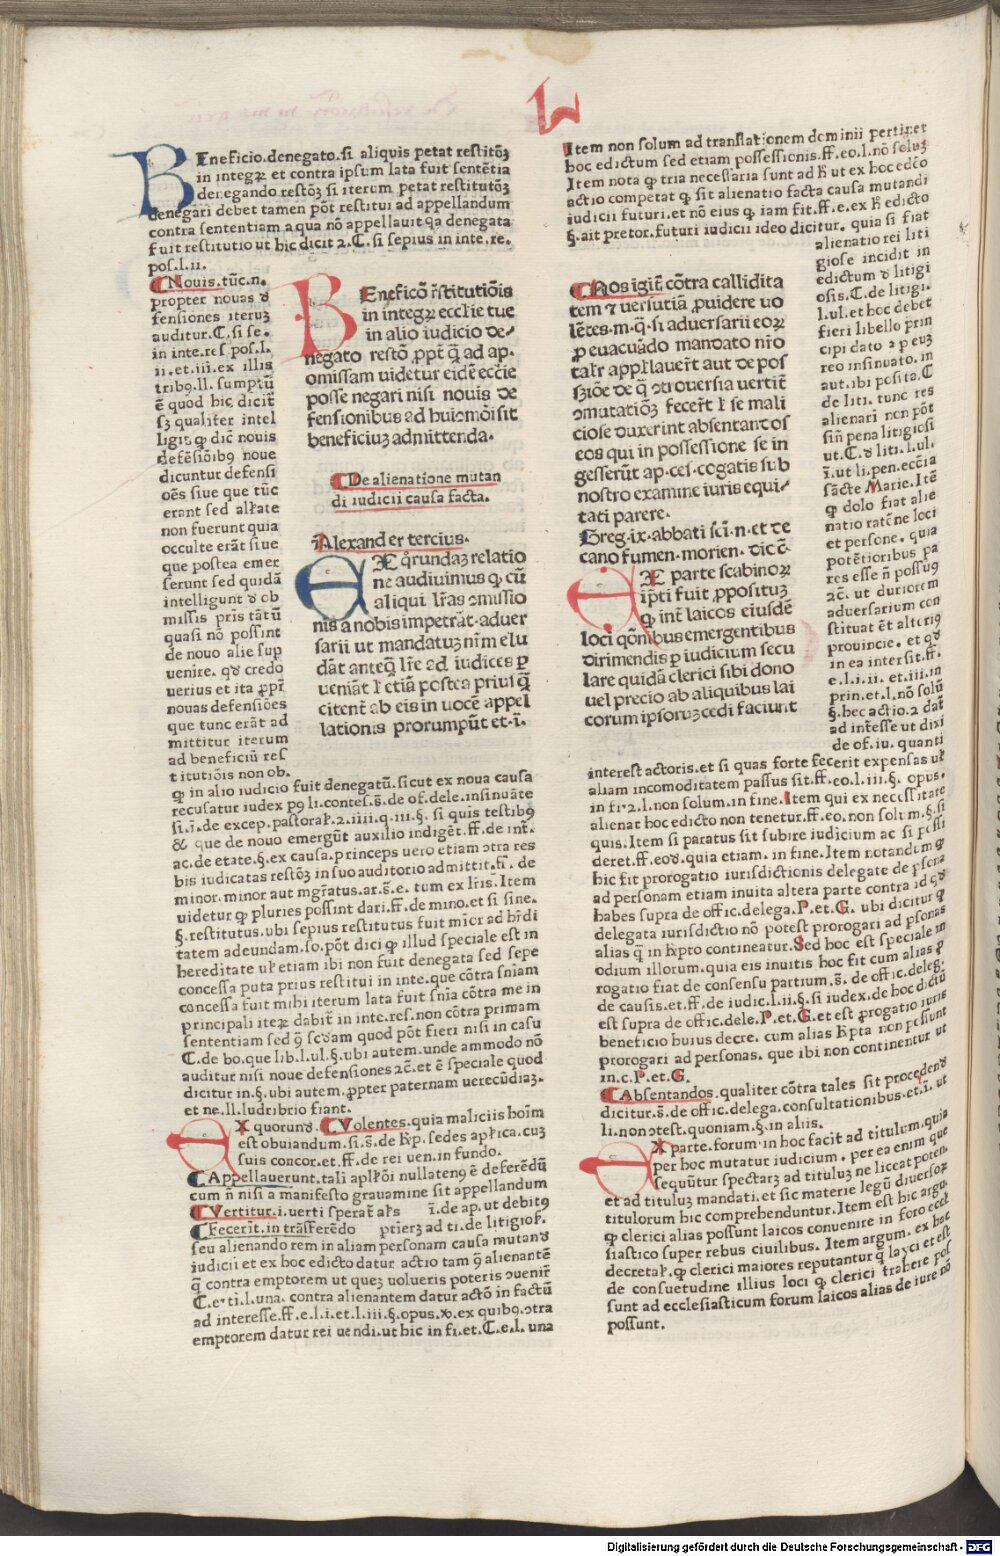 L
BEneficio.denegato.si aliquis petat restitōꝫ
in integrꝫ et contra ipsum lata fuit sentētia
denegando restōꝫ si iterum petat restitutōꝫ
denegari debet tamen pōt restitui ad appellandum
contra sententiam a qua nō appellauit qa denegata
fuit restitutio ut hic dicit 2.C.si sepius in inte.re.
pos.l.ii.
Nouis.tūc.n.
propter nouas d
fensiones iteruꝫ
auditur.C.si se.
in inte.res pos.l.
ii.et.iii.ex illis
trib9.ll.sumptū
ē quod hic dicit
sꝫ qualiter intel
ligit̄ ꝙ dic̄ nouis
defēsiōib9 noue
dicuntur defensi
oēs siue que tūc
erant sed allate
non fuerunt quia
occulte erāt siue
que postea emer
serunt sed quidā
intelligunt d ob
missis pris tātū
quasi nō possint
de nouo alie sup
uenire.qd credo
uerius et ita ꝓpt
nouas defensiōes
que tunc erāt ad
mittitur iterum
ad beneficiū res
titutiōis non ob.
ꝙ in alio iudicio fuit denegatū.sicut ex noua causa
recusatur iudex p9 li.contes.s̄.de of.dele.insinuāte
si.ī.de excep.pastoral.2.iiii.q.iii.§.si quis testib9
& que de nouo emergūt auxilio indiget̄.ff.de int̄.
ac.de etate.§.ex causa.princeps uero etiam ɔtra res
bis iudicatas restōꝫ in suo auditorio admittit.ff.de
minor.minor aut mgr̄atus.ar.s̄.e.tum ex lr̄is.Item
uidetur ꝙ pluries possint dari.ff.de mino.et si sine.
§.restitutus.ubi sepius restitutus fuit mīor ad hr̄di
tatem adeundam.so.pōt dici ꝙ illud speciale est in
hereditate ul etiam ibi non fuit denegata sed sepe
concessa puta prius restitui in inte.que cōtra sniam
concessa fuit mihi iterum lata fuit snīa cōtra me in
principali iteꝝ dabit̄ in inte.res.non cōtra primam
sententiam sed ɋ̄ scdam quod pōt fieri nisi in casu
C.de bo.que lib.l.ul.§.ubi autem.unde ammodo nō
auditur nisi noue defensiones 2c̄.et ē speciale quod
dicitur in.§.ubi autem.ꝓpter paternam uerecūdiaꝫ.
et ne.ll.ludribrio fiant.
EX quorund.Volentes.quia maliciis hoīm
est obuiandum.si.s̄.de hr̄p.sedes apl̄ica.cuꝫ
suis concor.et.ff.de rei uen.in fundo.
Appellauerunt.tali apl̄lōi nullateng ē deferēdū
cum n̄ nisi a manifesto grauamine sit appellandum
Vertitur.i.uerti sperat̄ als ī.de ap.ut debit9
Fecerit.in trāsferēdo ptierꝫ ad ti.de litigios.
seu alienando rem in aliam personam causa mutand
iudicii et ex hoc edicto datur actio tam 9 alienantē
q̄ contra emptorem ut queꝫ uolueris poteris ɔuenir̄
C.e.ti.l.una.contra alienantem datur actō in factū
ad interesse.ff.e.l.i.et.l.iii.§.opus.ꝟ.ex quib9.ɔtra
emptorem datur rei uendi.ut hic in fi.et.C.e.l.una
BEneficō r̄stitutiōis
in integrꝫ ecclīe tue
in alio iudicio de-
negato restō.ppt̄ q̄ ad ap.
omissam uidetur eidē ecc̄ie
posse negari nisi nouis de
fensionibus ad huiemōi sit
beneficiuꝫ admittenda.
De alienatione mutan
di iudicii causa facta.
Alexander tercius.
EX qr̄undaꝫ relatio
ne audiuimus ꝙ cū
aliqui lr̄as ɔmissio
nis a nobis impetrāt.aduer
sarii ut mandatuꝫ nr̄m elu
dāt anteq̄ lr̄e ad iudices p
ueniāt l etiā postea priusq̄
citent̄ ab eis in uocē appel
lationis prorumpūt et.ī.
Item non solum ad translationem dominii pertinet
hoc edictum sed etiam possessionis.ff.eo.l.nō soluꝫ
Item nota ꝙ tria necessaria sunt ad h̄ ut ex hoc edc̄o
actio competat ꝙ sit alienatio facta causa mutandi
iudicii futuri.et nō eius ꝙ iam fit.ff.e.ex h̄ edicto
§.ait pretor.futuri iudicii ideo dicitur.quia si fiat
alienatio rei liti
giose incidit in
edictum d litigi
osis.C.de litigi.
l.ul.et hoc debet
fieri libello prin
cipi dato 2 p euꝫ
reo insinuato.in
aut.ibi posita.C
de liti.tunc res
alienari non pōt
sin̄ pena litigiosi
ut.C.d liti.l.ul.
ī.ut li.pen.ecc̄ia
sācte Marie.Itē
ꝙ dolo fiat alie
natio ratōne loci
et persone.quia
potētioribus pa
res esse n̄ possu9
2c̄.ut duriorem
aduersarium con
stituat ēt alteri9
prouincie.et qd
in ea inter sit.ff.
e.l.i.ii.et.iii.in
prin.et.l.nō solū
§.hec actio.2 dat̄
ad int̄esse ut dixi
de of.iu.quanti
interest actoris.et si quas forte fecerit expensas ul
aliam incomoditatem passus sit.ff.eo.l.iii.§.opus.
in fi.2.l.non solum.in fine.Item qui ex necessitate
alienat hoc edicto non tenetur.ff.eo.non solum.§.si
quis.Item si paratus sit subire iudicium ac si possi
deret.ff.eod.quia etiam.in fine.Item notandum ꝙ
hic fit prorogatio iurisdictionis delegate de psona
ad personam etiam inuita altera parte contra id qd
habes supra de offic.delega.P.et.G.ubi dicitur ꝙ
delegata iurisdictio nō potest prorogari ad psonas
alias q̄ in hr̄pto contineatur.Sed hoc est speciale in
odium illorum.quia eis inuitis hoc fit cum alias p
rogatio fiat de consensu partium.s̄.de offic.deleg.
de causis.et.ff.de iudic.l.ii.§.si iudex.de hoc dictū
est supra de offic.dele.P.et.G.et est ꝓrogatio iuris
beneficio huius decre.cum alias hr̄pta non possunt
prorogari ad personas.que ibi non continentur ut
in.c.P.et.G.
Absentandos.qualiter cōtra tales sit procedend
dicitur.s̄.de offic.delega.consultationibus.et.ī.ut
li.non ɔtest.quoniam.§.in aliis.
EX parte.forum in hoc facit ad titulum.quia
per hoc mutatur iudicium.per ea enim que
sequūtur spectarꝫ ad tituluꝫ ne liceat poten.
et ad tituluꝫ mandati.et sic materie legū diuersoꝝ
titulorum hic comprehenduntur.Item est hic argu.
ꝙ clerici alias possunt laicos conuenire in foro eccl
siastico super rebus ciuilibus.Item argum.ex hac
decretal.ꝙ clerici maiores reputantur q̄ layci et est
de consuetudine illius loci ꝙ clerici trahere pos
sunt ad ecclesiasticum forum laicos alias de iure nō
possunt.
Nos igit̄ cōtra callidita
tem 7 uersutiā ꝓuidere uo
lētes.m.q̄.si aduersarii eoꝝ
ꝓ euacuādo mandato nr̄o
talr̄ appl̄lauer̄t aut de pos
sꝫiōe de q̄ ɔtrouersia uertit̄
ɔmutatiōꝫ fecer̄t l se mali
ciose duxerint absentandos
eos qui in possessione se in
gesserūt ap.ces.cogatis sub
nostro examine iuris equi-
tati parere.
Greg.ix.abbati sci.n.et de
cano fumen.morien.dic̄ c̄.
EX parte scabinoꝝ
ip̄ti fuit ꝓpositurꝫ
ꝙ int̄ laicos eiusdē
loci qōnibus emergentibus
dirimendis p iudicium secu
lare quidā clerici sibi dono
uel precio ab aliquibus lai
corum ipsoruꝫ cedi faciunt
Digitalisierung gefördert durch die Deutsche Forschungsgemeinschaft - DFG